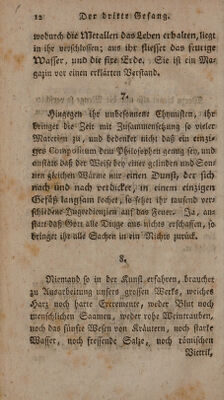 12 Der dritte Gesang.
wodurch die Metallen das Leben erhalten, liegt
in ihr verschlossen; aus ihr fliesset das feurige
Wasser, und die fixe Erde. Sie ist ein Ma-
gazin vor einen erklärten Verstand.
7.
Hingegen ihr unbesonnene Chymisten, ihr
bringet die Zeit mit Zusammensetzung so vieler
Materien zu, und bedenket nicht daß ein einzi-
ges Compositum dem Philosophen genug sey, und
anstatt daß der Weise bey einer gelinden und Son-
nen gleichen Wärme nur einen Dunst, der sich
nach und nach verdicket, in einem einzigen
Gefäß langsam kochet, so setzet ihr tausend ver-
schiedene Ingredienzien auf das Feuer. Ja, an-
statt daß Gott alle Dinge aus nichts erschaffen, so
bringet ihr alle Sachen in ein Nichts zurück.
8.
Niemand so in der Kunst erfahren, brauchet
zu Ausarbeitung unsers grossen Werks, weiches
Harz noch harte Excremente, weder Blut noch
menschlichen Saamen, weder rohe Weintrauben,
noch das fünfte Wesen von Kräutern, noch starke
Wasser, noch fressende Salze, noch römischen
Vitriil,